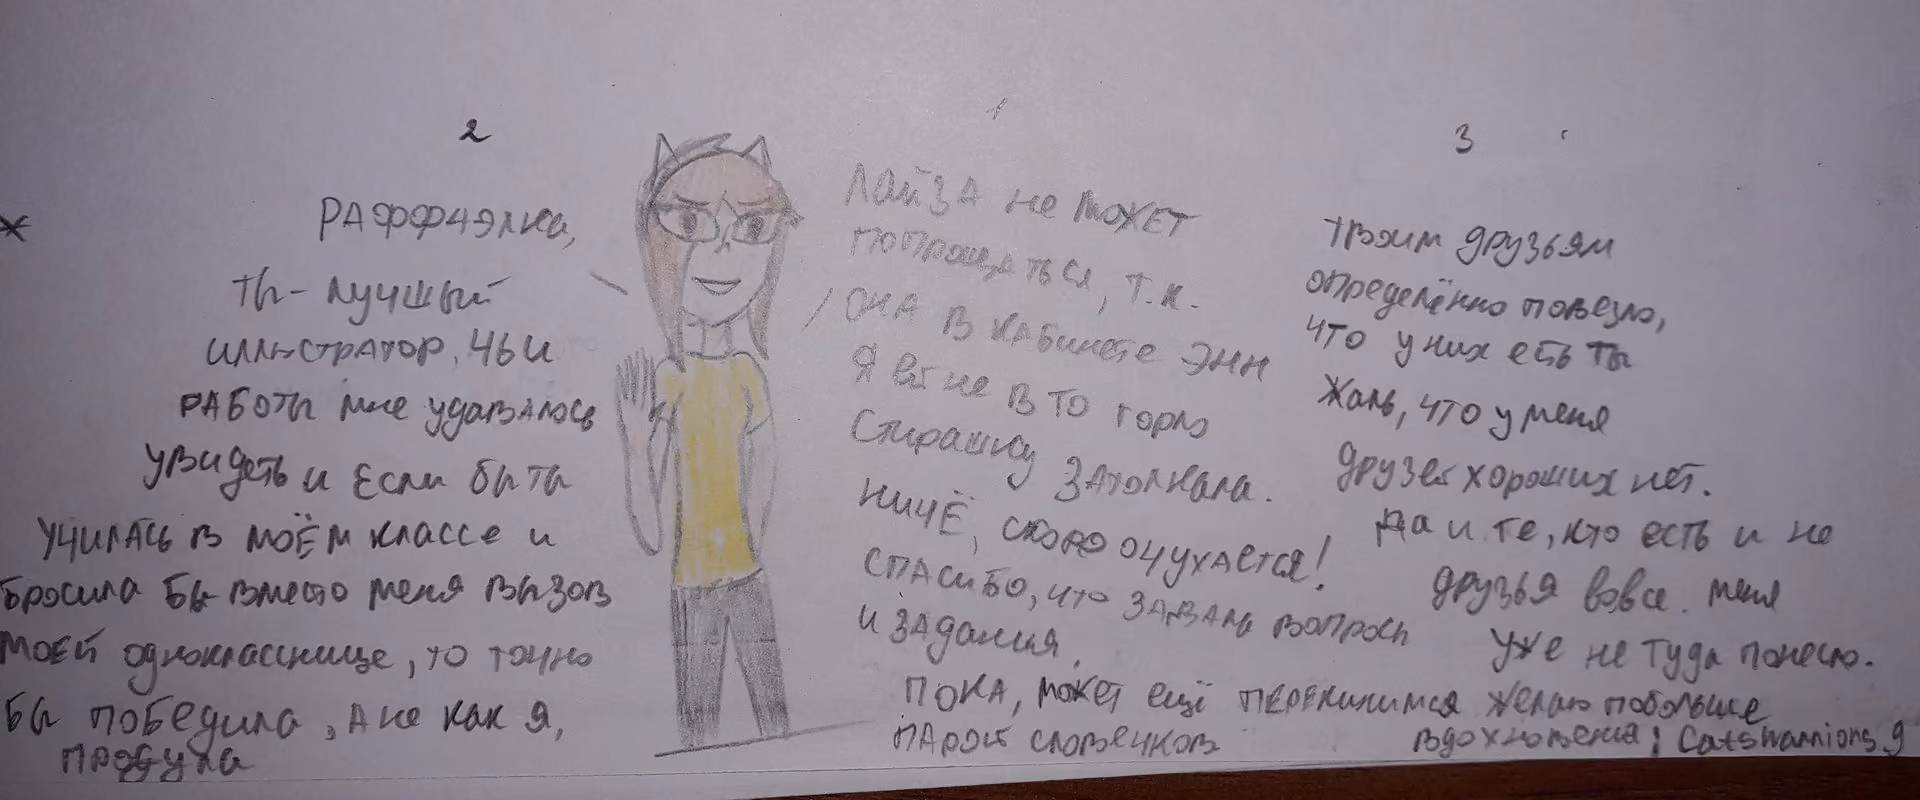 1
ЛАЙЗА не может
попрощаться, т.к.
она в кабинете Энн
Я ей не в то горло
Стирашку затолкала.
Ничё, скоро очухается!
Спасибо, что задала вопросы
и задания.
Пока, может ещё перекинимся
парой словечков
2
Раффчэлка,
ты - лучший
иллюстратор, чьи
работы мне удавалось
увидеть и если бы ты
училась в моём классе и
бросила бы вместо меня вызов
моей однокласснице, то точно
бы победила, а не как я,
продула
3
твоим друзьям
определённо повезло,
что у них есть ты
Жаль, что у меня
друзей хороших нет.
Да и те, кто есть и не
друзья вовсе. меня
уже не туда понесло.
желаю побольше
вдохновения,